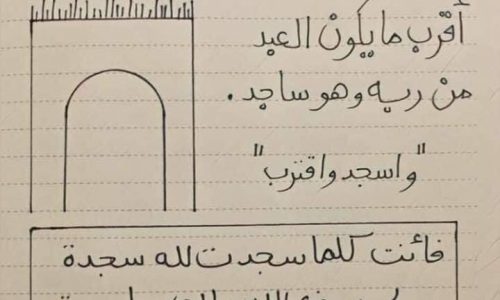 أقرب ما يكون العبد
من ربه وهو ساجد .
"واسجد واقترب"
فائنت كلما سجدت لله سجدة